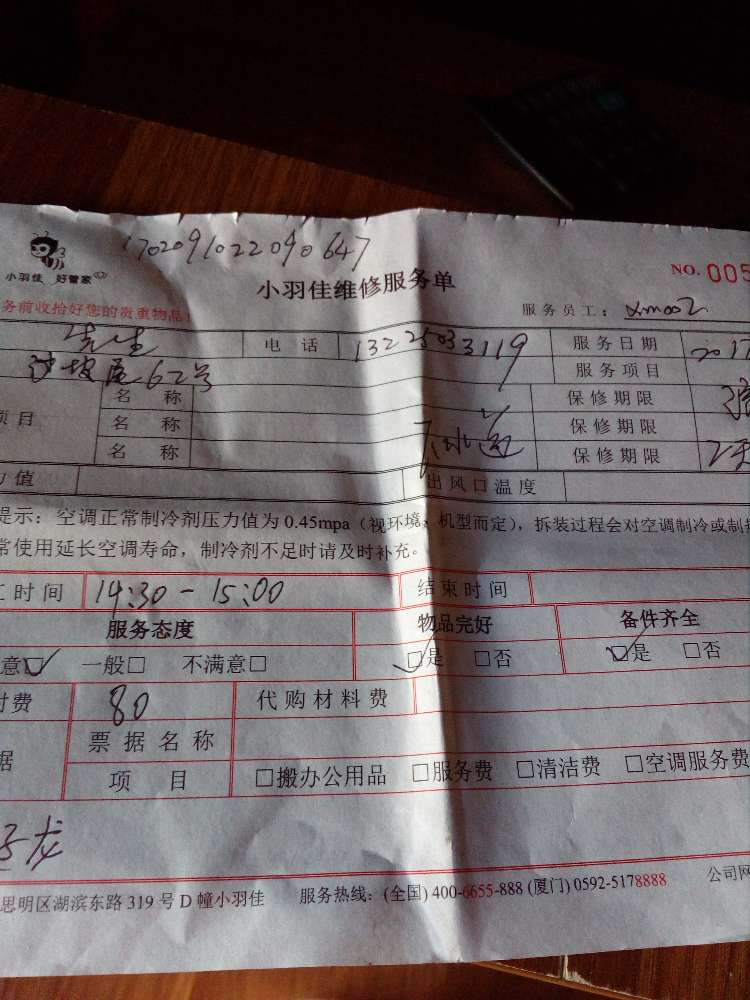 170209102209 0647
小羽佳 好管家
小羽佳维修服务单
NO. 005
务前收拾好您的贵重物品
服务员工： xm002
先生 电 话 13225033119 服务日期 2017
沙坡尾62号 服务项目
项目 名 称 保修期限
名 称 下水道 保修期限
名 称 保修期限 2天
力值 出风口温度
提示：空调正常制冷剂压力值为 0.45mpa（视环境，机型而定），拆装过程会对空调制冷或制热
常使用延长空调寿命，制冷剂不足时请及时补充。
工时间 14:30 - 15:00 结束时间
服务态度 物品完好 备件齐全
意☑ 一般□ 不满意□ ☑是 □否 ☑是 □否
付费 80 代购材料费
据 票据名称
项 目 □搬办公用品 □服务费 □清洁费 □空调服务费
龙
思明区湖滨东路 319 号 D 幢小羽佳 服务热线：(全国) 400-6655-888 (厦门) 0592-5178888 公司网